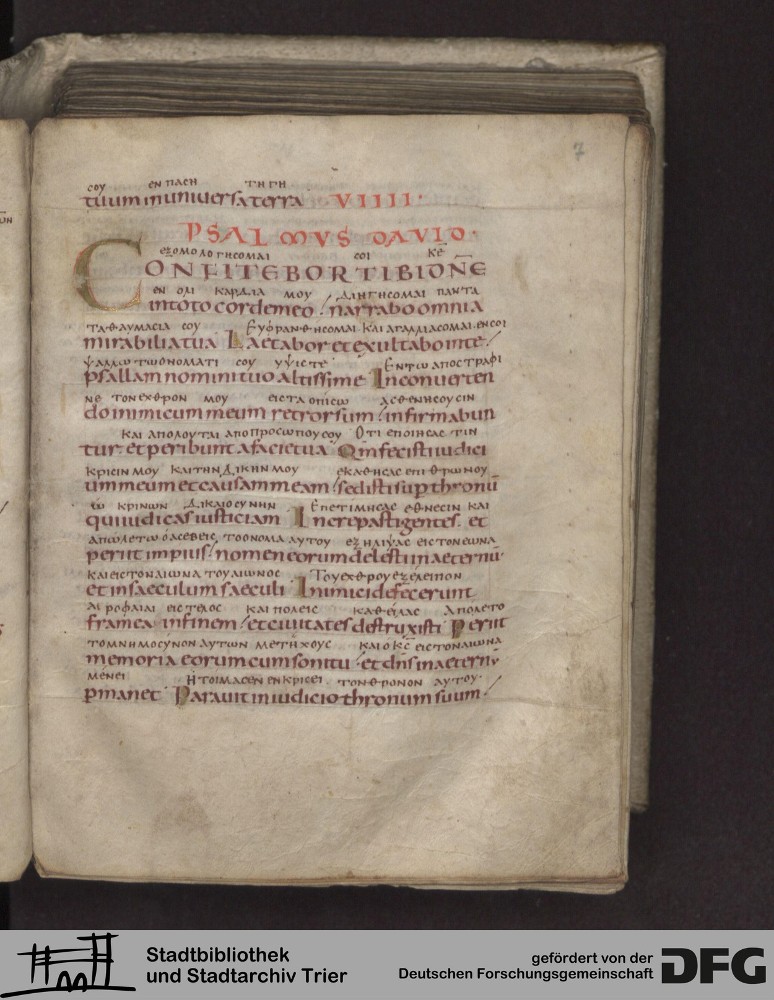 7
ϹΟΥ ΕΝ ΠΑϹΗ ΤΗ ΓΗ
tuum in universa terra VIIII·
PSALMVS DAVID·
ΕΞΟΜΟΛΟΓΗϹΟΜΑΙ ϹΟΙ Κ̅Ε̅
CONFITEBOR TIBI DN̅E
ΕΝ ΟΛΙ ΚΑΡΔΙΑ ΜΟΥ ΔΙΗΓΗϹΟΜΑΙ ΠΑΝΤΑ
in toto corde meo / narrabo omnia
ΤΑ ΘΑΥΜΑϹΙΑ ϹΟΥ ΕΥΦΡΑΝΘΗϹΟΜΑΙ ΚΑΙ ΑΓΑΛΛΙΑϹΟΜΑΙ ΕΝ ϹΟΙ
mirabilia tua Laetabor et exultabo in te /
ΨΑΛΛΩ ΤΩ ΟΝΟΜΑΤΙ ϹΟΥ ΥΨΙϹΤΕ ΕΝ ΤΩ ΑΠΟϹΤΡΑΦΙ
psallam nomini tuo altissime In converten
ΝΕ ΤΟΝ ΕΧΘΡΟΝ ΜΟΥ ΕΙϹ ΤΑ ΟΠΙϹΩ ΑϹΘΕΝΗϹΟΥϹΙΝ
do inimicum meum retrorsum / infirmabun
ΚΑΙ ΑΠΟΛΟΥΤΑΙ ΑΠΟ ΠΡΟϹΩΠΟΥ ϹΟΥ ΟΤΙ ΕΠΟΙΗϹΑϹ ΤΙΝ
tur et peribunt a facie tua Qm fecisti iudici
ΚΡΙϹΙΝ ΜΟΥ ΚΑΙ ΤΗΝ ΔΙΚΗΝ ΜΟΥ ΕΚΑΘΗϹΑϹ ΕΠΙ ΘΡΩΝΟΥ
um meum et causam meam / sedisti sup thronū
Ω ΚΡΙΝΩΝ ΔΙΚΑΙΟϹΥΝΗΝ ΕΠΕΤΙΜΗϹΑϹ ΕΘΝΕϹΙΝ ΚΑΙ
qui iudicas iusticiam Increpasti gentes et
ΑΠΩΛΕΤΩ Ο ΑϹΕΒΕΙϹ ΤΟ ΟΝΟΜΑ ΑΥΤΟΥ ΕΞΗΛΙΨΑϹ ΕΙϹ ΤΟΝ ΕΩΝΑ
periit impius / nomen eorum delesti in aeternū
ΚΑΙ ΕΙϹ ΤΟΝ ΑΙΩΝΑ ΤΟΥ ΑΙΩΝΟϹ ΤΟΥ ΕΧΘΡΟΥ ΕΞΕΛΕΙΠΟΝ
et in saeculum saeculi Inimici defecerunt
ΑΙ ΡΟΦΑΙΑΙ ΕΙϹ ΤΕΛΟϹ ΚΑΙ ΠΟΛΕΙϹ ΚΑΘΕΙΛΑϹ ΑΠΟΛΕΤΟ
framea in finem / et civitates destruxisti Periit
ΤΟ ΜΝΗΜΟϹΥΝΟΝ ΑΥΤΩΝ ΜΕΤ ΗΧΟΥϹ ΚΑΙ Ο Κ̅Ϲ̅ ΕΙϹ ΤΟΝ ΑΙΩΝΑ
memoria eorum cum sonitu / et dn̅s in aeternū
ΜΕΝΕΙ ΗΤΟΙΜΑϹΕΝ ΕΝ ΚΡΙϹΕΙ ΤΟΝ ΘΡΟΝΟΝ ΑΥΤΟΥ·
pmanet Paravit in iudicio thronum suum /
Stadtbibliothek
und Stadtarchiv Trier
gefördert von der
Deutschen Forschungsgemeinschaft
DFG